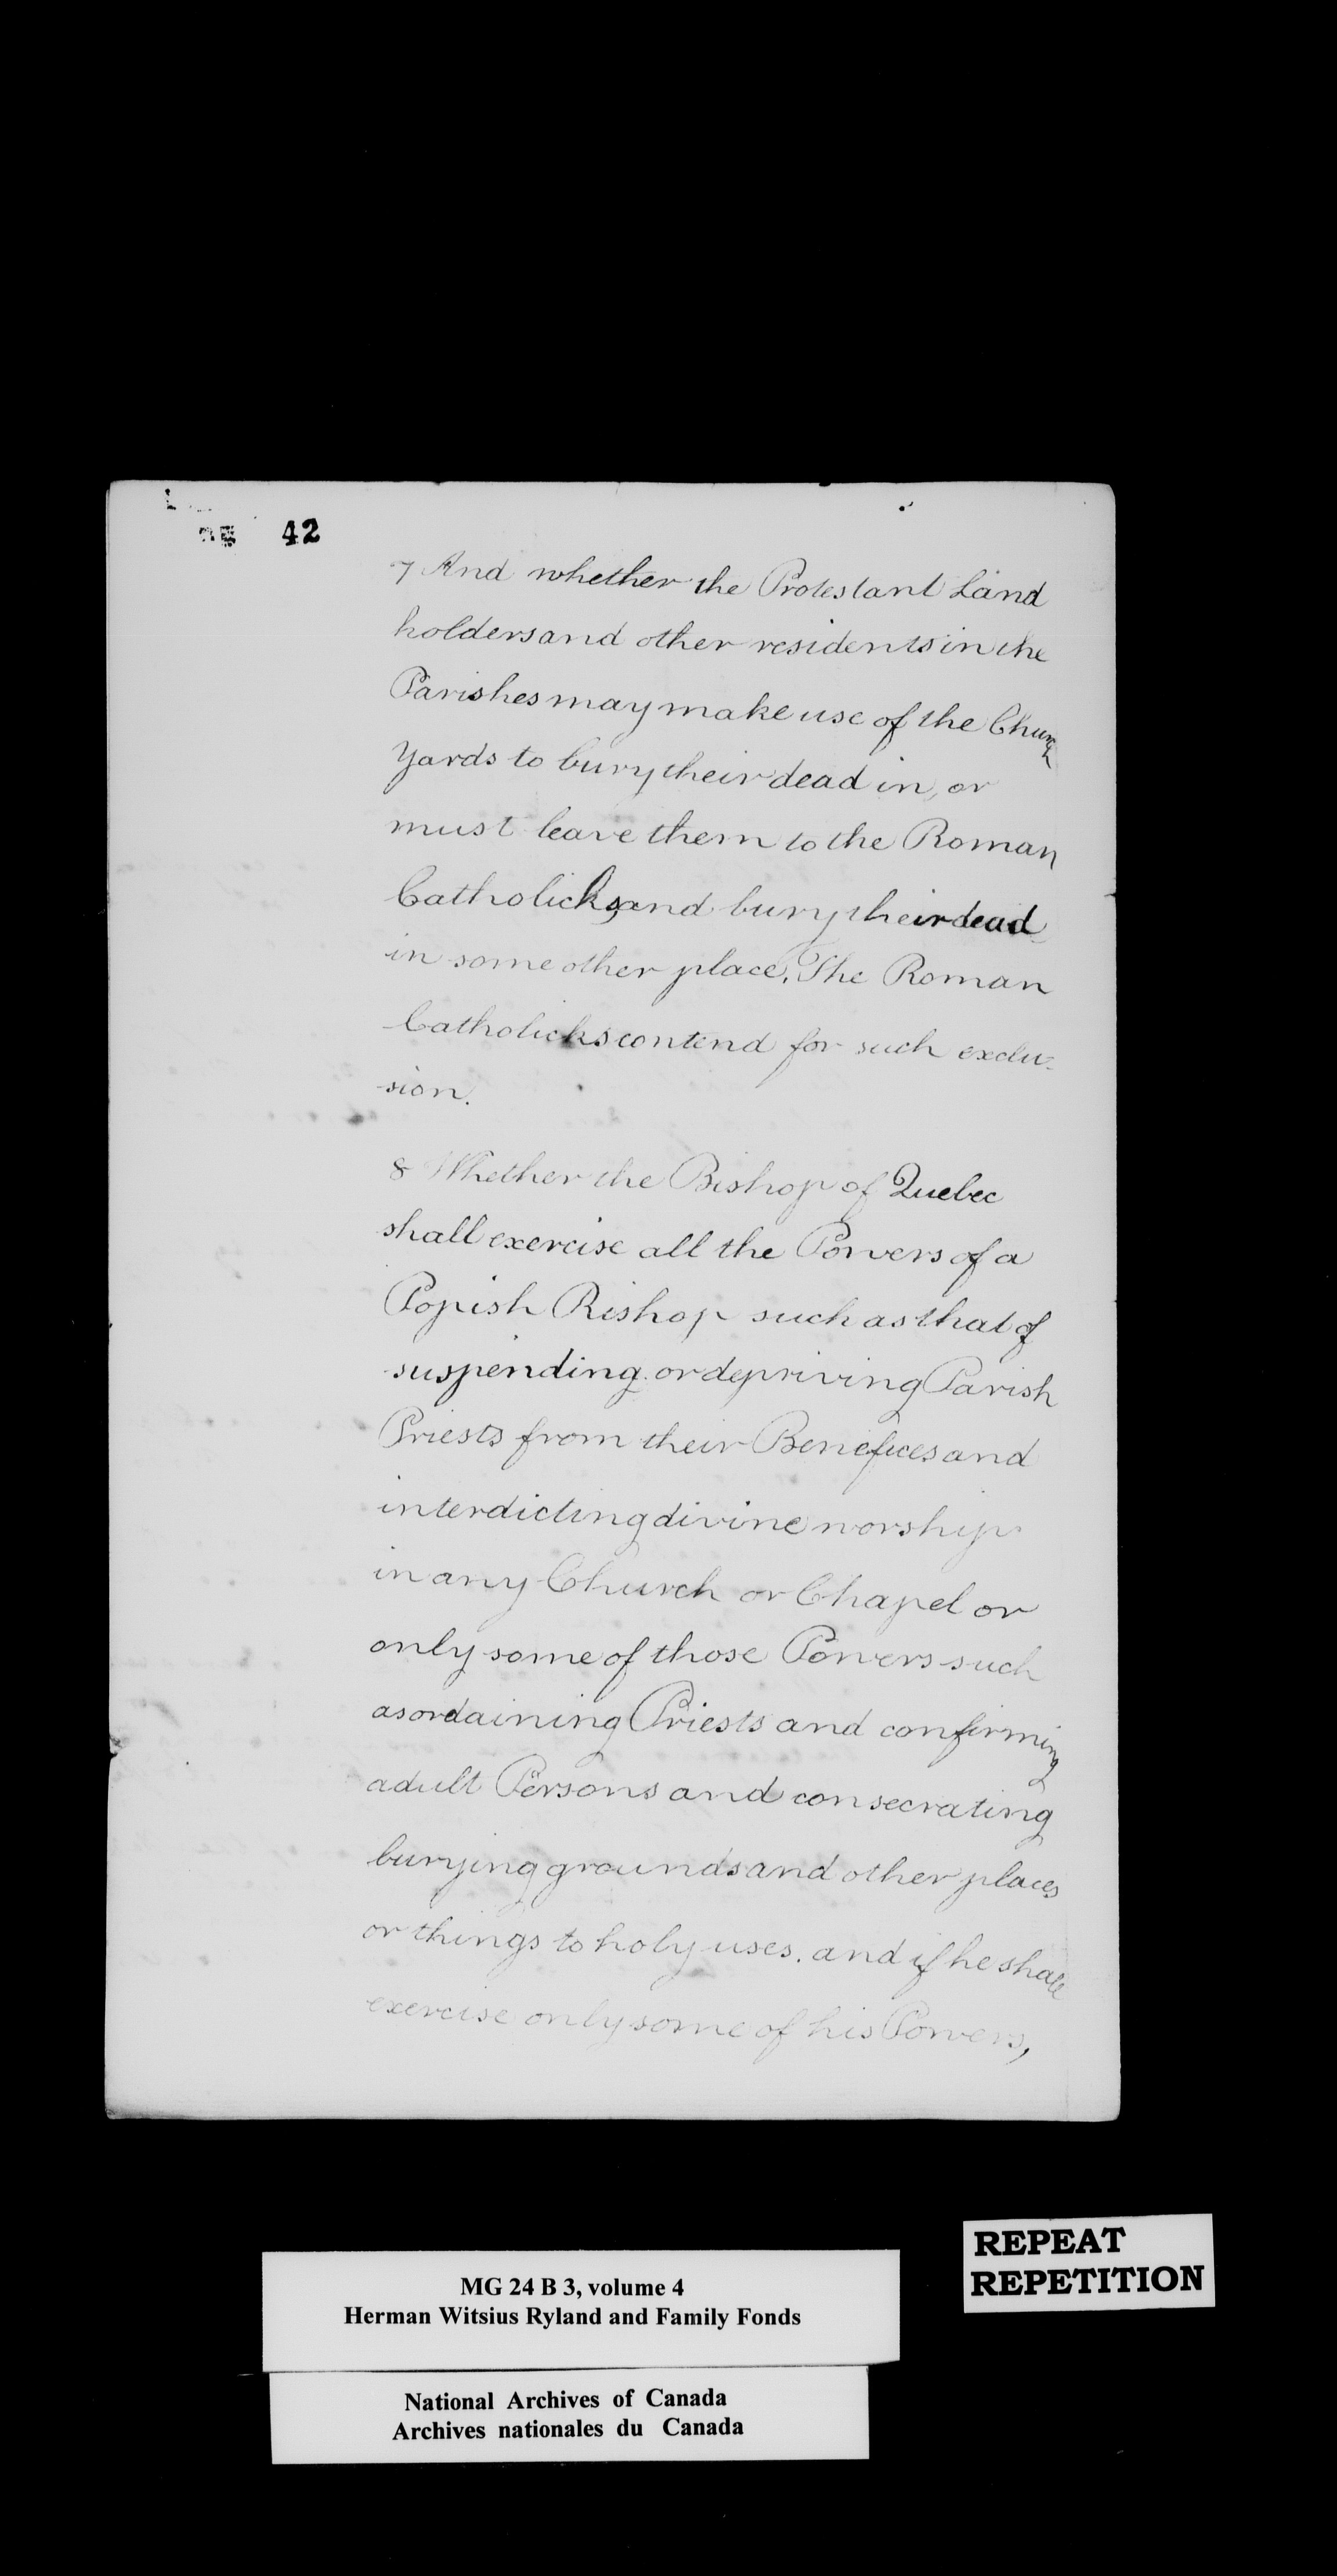 42
7 And whether the Protestant Land
holders and other residents in the
Parishes may make use of the Church
Yards to bury their dead in, or
must leave them to the Roman
Catholicks, and bury their dead
in some other place. The Roman
Catholicks contend for such exclu-
sion.
8 Whether the Bishop of Quebec
shall exercise all the Powers of a
Popish Bishop such as that of
suspending or depriving Parish
Priests from their Benefices and
interdicting divine worship
in any Church or Chapel or
only some of those Powers such
as ordaining Priests and confirming
adult Persons and consecrating
burying grounds and other places
or things to holy uses. and if he shall
exercise only some of his Powers,
REPEAT
REPETITION
MG 24 B 3, volume 4
Herman Witsius Ryland and Family Fonds
National Archives of Canada
Archives nationales du Canada